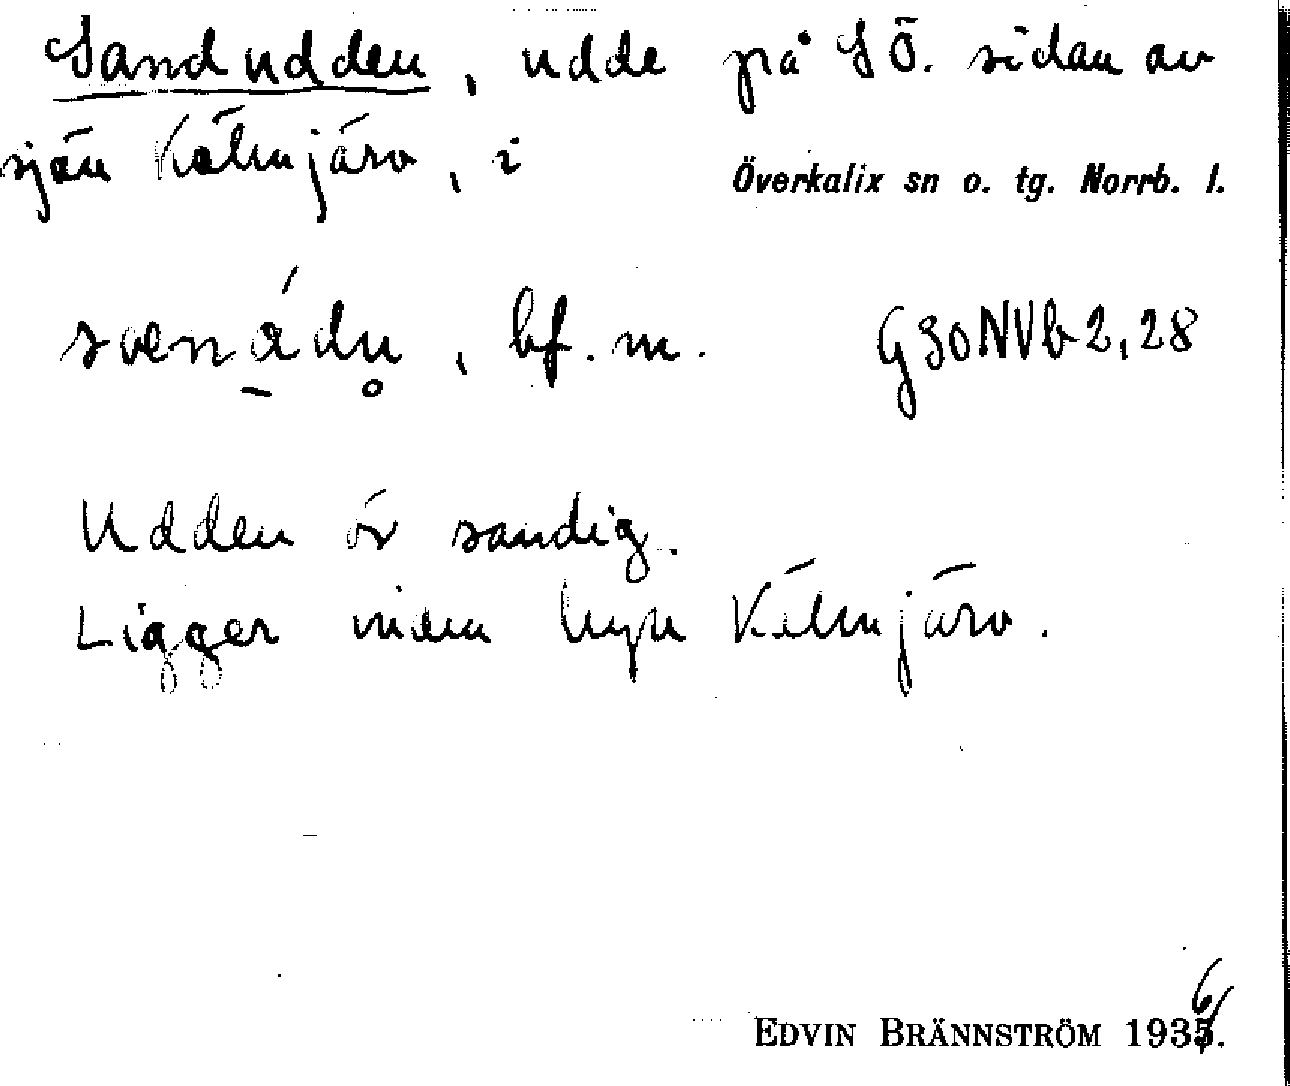 Sandudden, udde på SÖ. sidan av
sjön Kälmjärv, i
Överkalix sn o. tg. Norrb. l.
bf. m. G30NVb2,28
Udden är sandig.
Ligger inom byn Kälmjärv.
EDVIN BRÄNNSTRÖM 1936.